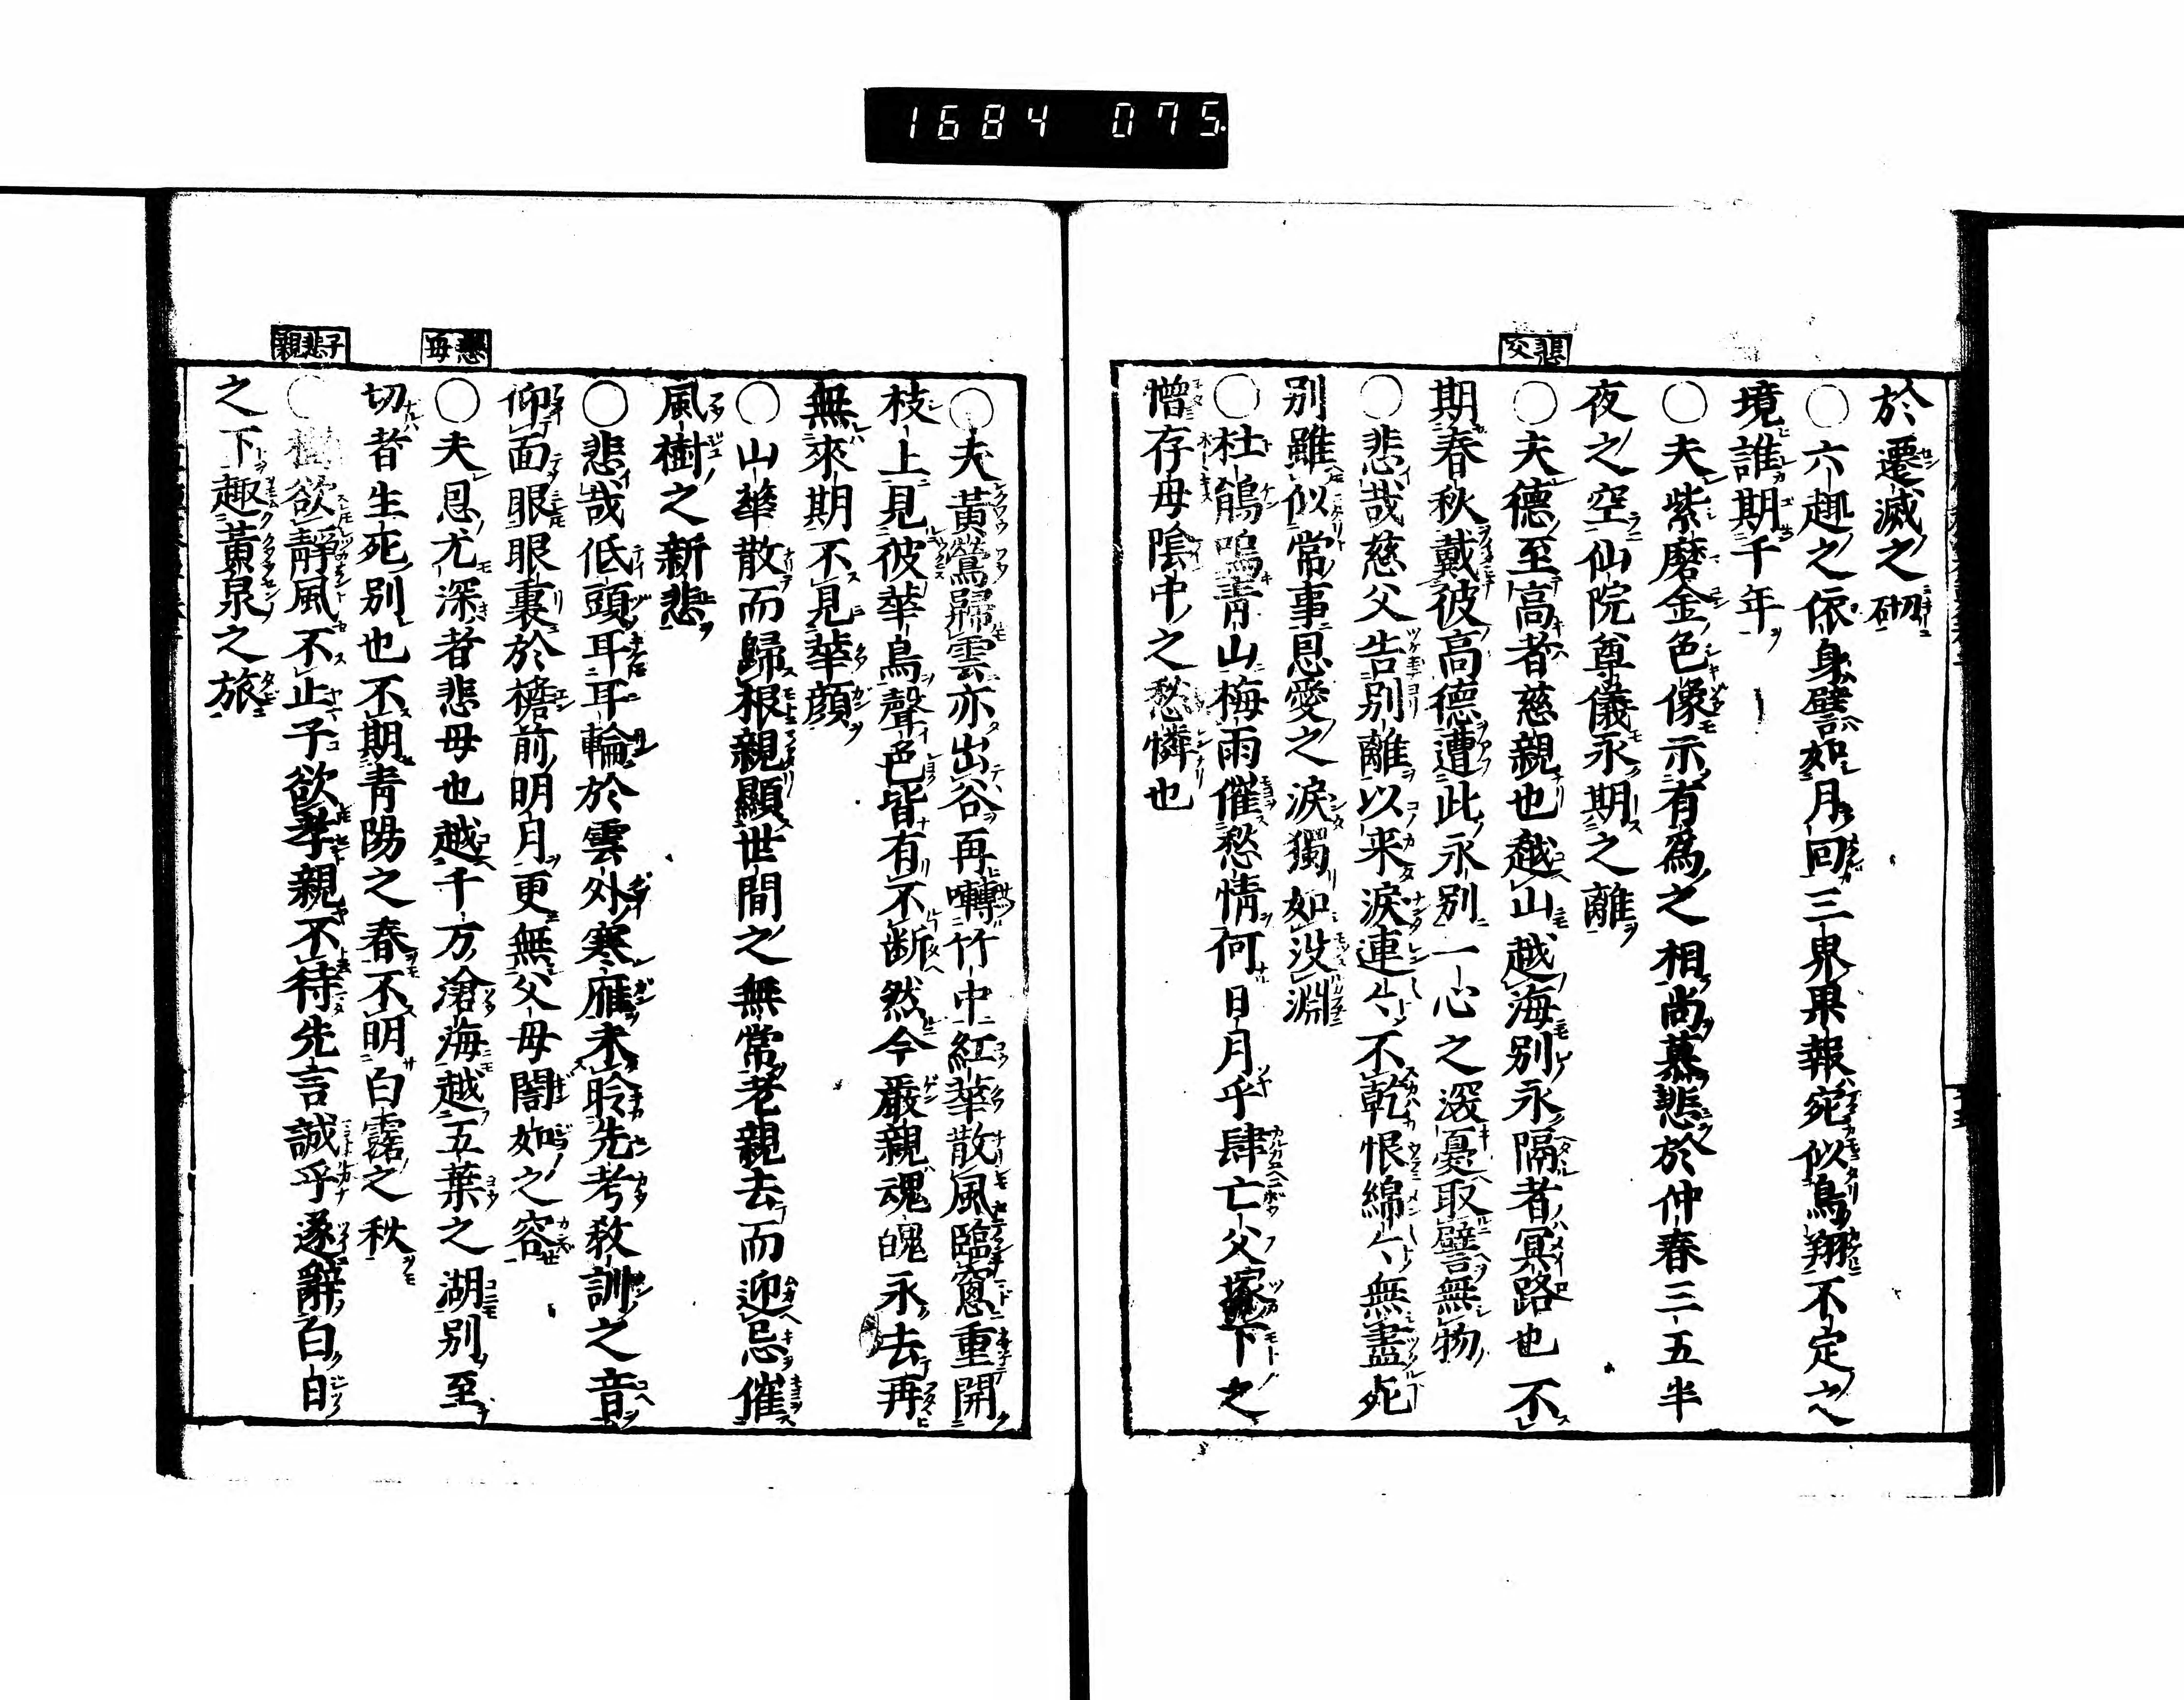 1684 075.
於遷滅之砌
○六趣之依身譬如月回三界果報宛似鳥翔不定之
境誰期千年
○夫紫磨金色像示有爲之相尚慕悲於仲春三五半
夜之空仙院尊儀永期之離
悲父
○夫德至高者慈親也越山越海別永隔者冥路也不
期春秋戴彼高德遭此永別一心之深憂取譬無物
○悲哉慈父告別離以来淚連〻不乾恨綿〻無盡死
別雖似常事恩愛之淚獨如没淵
○杜鵑鳴青山梅雨催愁情何日月乎肆亡父塚下之
憎存母陰中之愁憐也
○夫黃鶯歸雲亦出谷再囀竹中紅華散風臨窓重開
枝上見彼華鳥聲色皆有不断然今嚴親魂魄永去再
無來期不見華顔
○山華散而歸根親顯世間之無常老親去而迎忌催
風樹之新悲
○悲哉低頭耳耳輪於雲外寒雁未聆先考教訓之音
仰面眼眼裏於檐前明月更無父母闇如之容
悲母
○夫恩尤深者悲母也越千万滄海越五葉之湖別至
切者生死別也不期青陽之春不明白露之秋
子悲親
○樹欲靜風不止子欲孝親不待先言誠乎遂辭白日
之下趣黃泉之旅